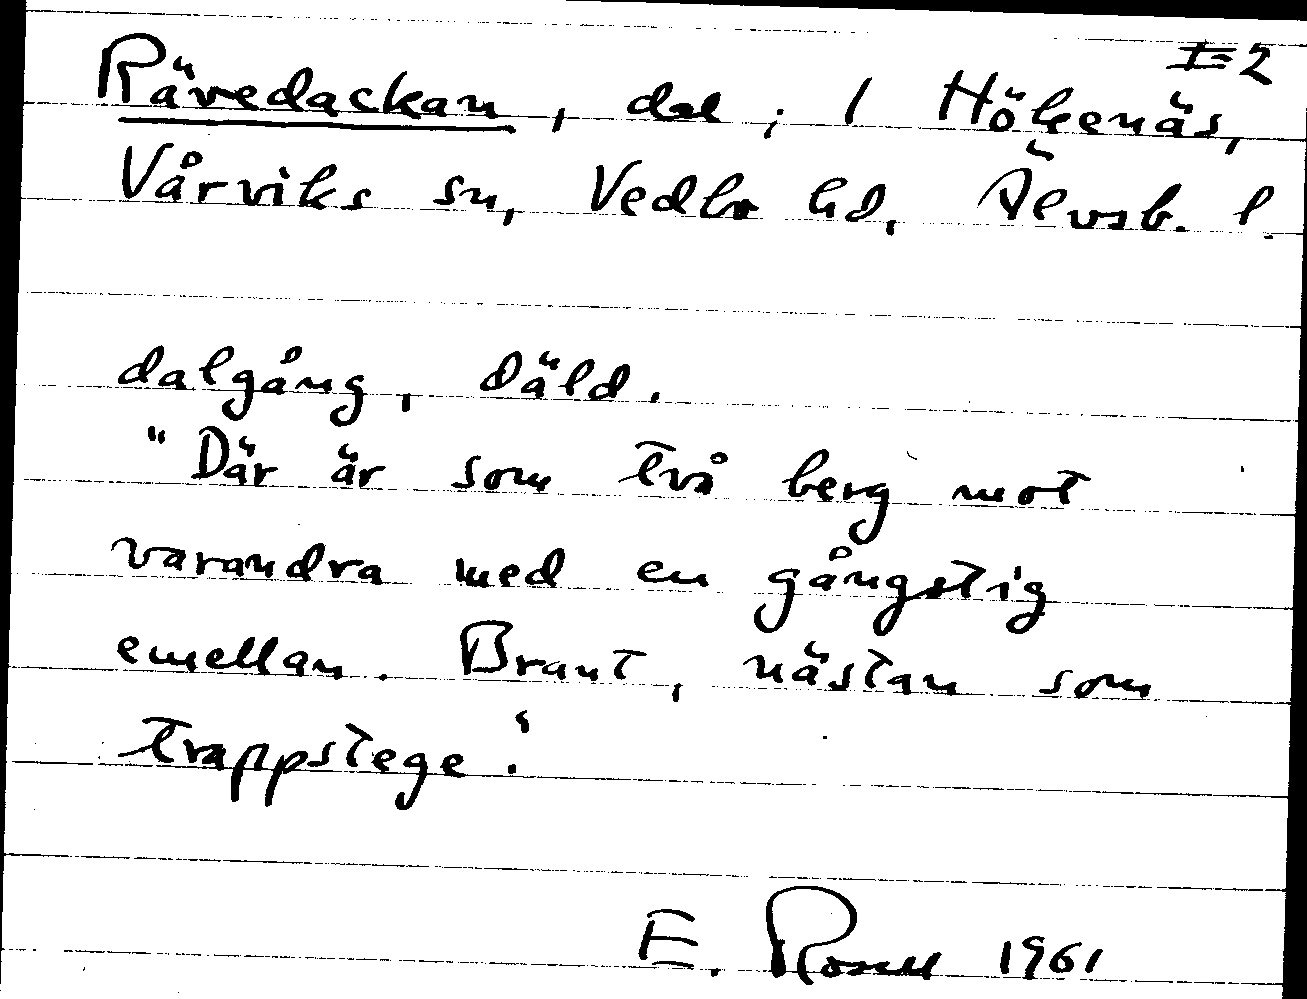 I=2
Rävedackan, dal; 1 Hökenäs,
Vårviks sn, Vedbo hd, Älvsb. l.
dalgång, däld.
"Där är som två berg mot
varandra med en gångstig
emellan. Brant, nästan som
trappstege."
E. 1961